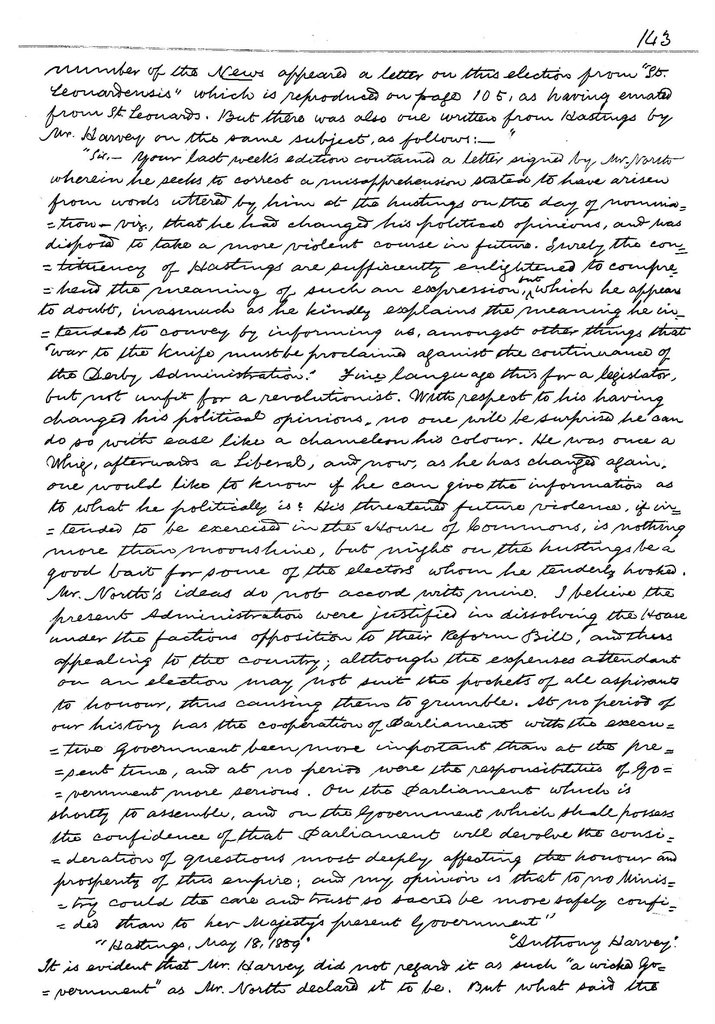 143
number of the News appeared a letter on this election from "St.
Leonardensis" which is reproduced on page 105, as having emated
from St. Leonards. But there was also one written from Hastings by
Mr. Harvey on the same subject, as follows:— "
"Sir,— Your last week's edition contained a letter signed by Mr. North
wherein he seeks to correct a misapprehension stated to have arisen
from words uttered by him at the hustings on the day of nomina=
=tion — viz, that he had changed his political opinions, and was
disposed to take a more violent course in future. Surely the con=
=tituency of Hastings are sufficiently enlightened to compre=
=hend the meaning of such an expression, but which he appears
to doubt, inasmuch as he kindly explains the meaning he in=
=tended to convey by informing us, amongst other things that
"war to the knife must be proclaimed against the continuance of
the Derby Administration." Fine language this for a legislator,
but not unfit for a revolutionist. With respect to his having
changed his political opinions, no one will be surprised he can
do so with ease like a chameleon his colour. He was once a
Whig, afterwards a Liberal, and now, as he has changed again,
one would like to know if he can give the information as
to what he politically is? His threatened future violence, if in=
=tended to be exercised in the House of Commons, is nothing
more than moonshine, but might on the hustings be a
good bait for some of the electors whom he tenderly hooked.
Mr. North's ideas do not accord with mine. I believe the
present Administration were justified in dissolving the House
under the factious opposition to their Reform Bill, and thus
appealing to the country; although the expenses attendant
on an election may not suit the pockets of all aspirants
to honour, thus causing them to grumble. At no period of
our history has the cooperation of Parliament with the execu=
=tive Government been more important than at the pre=
=sent time, and at no period were the responsibilities of Go=
=vernment more serious. On the Parliament which is
shortly to assemble, and on the Government which shall possess
the confidence of that Parliament will devolve the consi=
=deration of questions most deeply affecting the honour and
prosperity of this empire; and my opinion is that to no Minis=
=try could the care and trust so sacred be more safely confi=
=ded than to her Majesty's present Government"
"Hastings, May 18, 1859" "Anthony Harvey".
It is evident that Mr. Harvey did not regard it as such "a wicked Go=
=vernment" as Mr. North declared it to be. But what said the